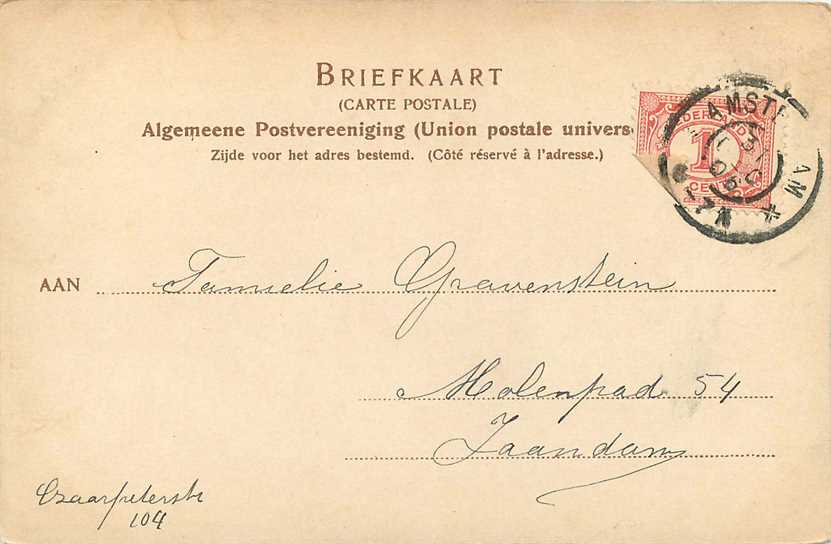 BRIEFKAART
(CARTE POSTALE)
Algemeene Postvereeniging (Union postale univers
Zijde voor het adres bestemd. (Côté réservé à l'adresse.)
AMST AM
NEDERLAND
1
CENT
AAN Familie Gravenstein
Molenpad 54
Zaandam
Czaarpeterstr
104